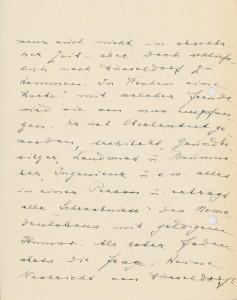 wenn auch nicht in absehba-
rer Zeit - aber doch schließ-
lich nach Düsseldorf zu
kommen. In Wochen eine
Karte! mit welcher Freude
wird sie von uns empfan-
gen. Er ist Oberleutnant ge-
worden, Architekt, Grundbe-
sitzer, Landwird u Baumeis-
ter, Ingenieur u.s.w. alles
in einer Person u. erträgt
alle Schrecknisse des Noma-
denlebens mit goldigem
Humor. Als roter Faden
stets die Frage: Keine
Nachricht aus Düsseldorf?